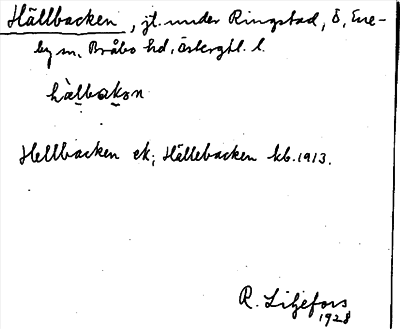 Hällbacken, jt. under Ringstad, Ö, Ene-
by sn, Bråbo hd, Östergtl. l.
hàlbakɔn
Hellbacken ek; Hällebacken kb. 1913.
R. Liljefors
1928